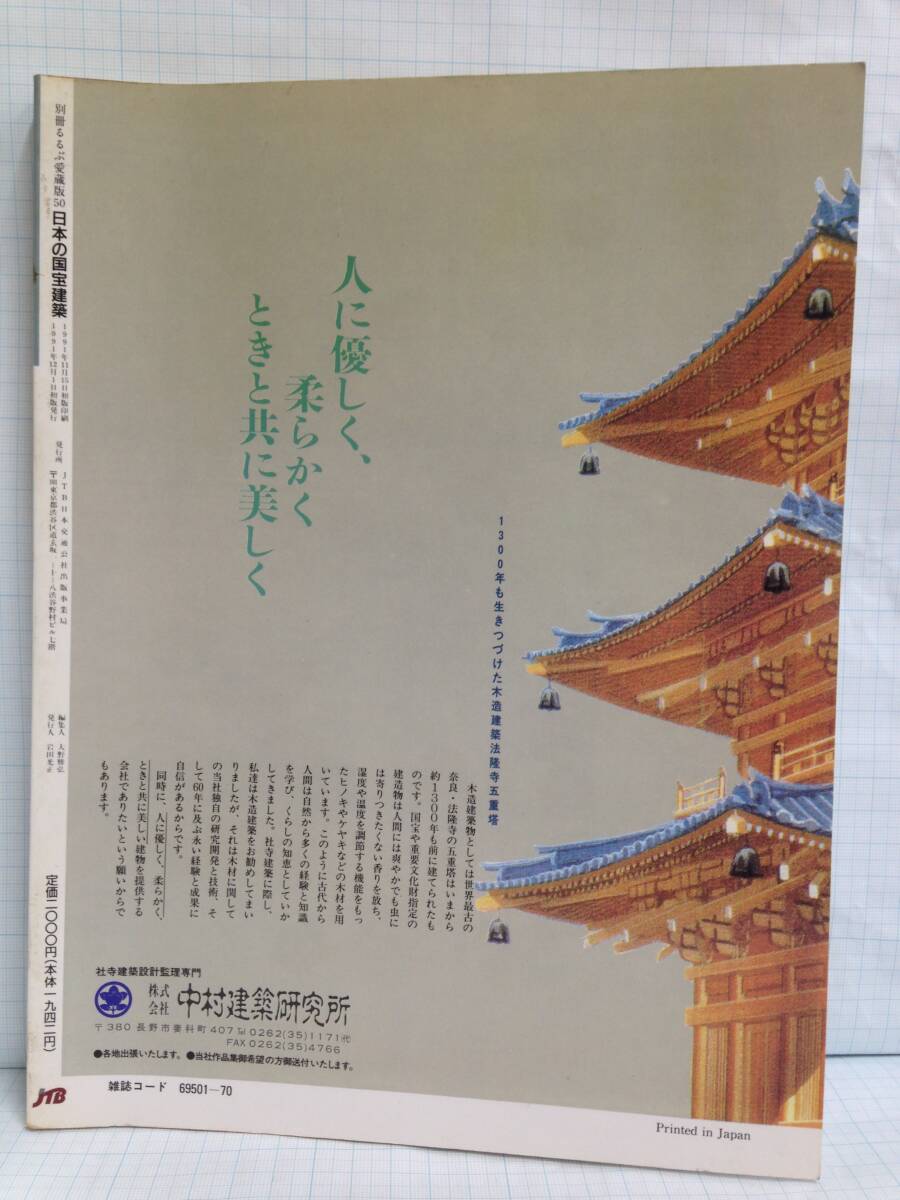 別冊るるぶ愛蔵版50 日本の国宝建築
1991年11月15日初版印刷
1991年12月1日初版発行
発行所
JTB日本交通公社出版事業局
編集人
発行人
定価二〇〇〇円(本体一九四二円)
JTB
人に優しく、
柔らかく
ときと共に美しく
1300年も生きつづけた木造建築法隆寺五重塔
木造建築物としては世界最古の
奈良・法隆寺の五重塔はいまから
約1300年も前に建てられたも
のです。国宝や重要文化財指定の
建造物は人間には爽やかでも虫に
は寄りつきたくない香りを放ち、
湿度や温度を調節する機能をもっ
たヒノキやケヤキなどの木材を用
いています。このように古代から
人間は自然から多くの経験と知識
を学び、くらしの知恵としていか
してきました。社寺建築に際し、
私達は木造建築をお勧めしてまい
りましたが、それは木材に関して
の当社独自の研究開発と技術、そ
して60年に及ぶ永い経験と成果に
自信があるからです。
同時に、人に優しく、柔らかく、
ときと共に美しい建物を提供する
会社でありたいという願いからで
もあります。
社寺建築設計監理専門
株式会社 中村建築研究所
〒380 長野市妻科町407 ℡0262(35)1171㈹
FAX 0262(35)4766
●各地出張いたします。●当社作品集御希望の方御送付いたします。
雑誌コード 69501-70
Printed in Japan